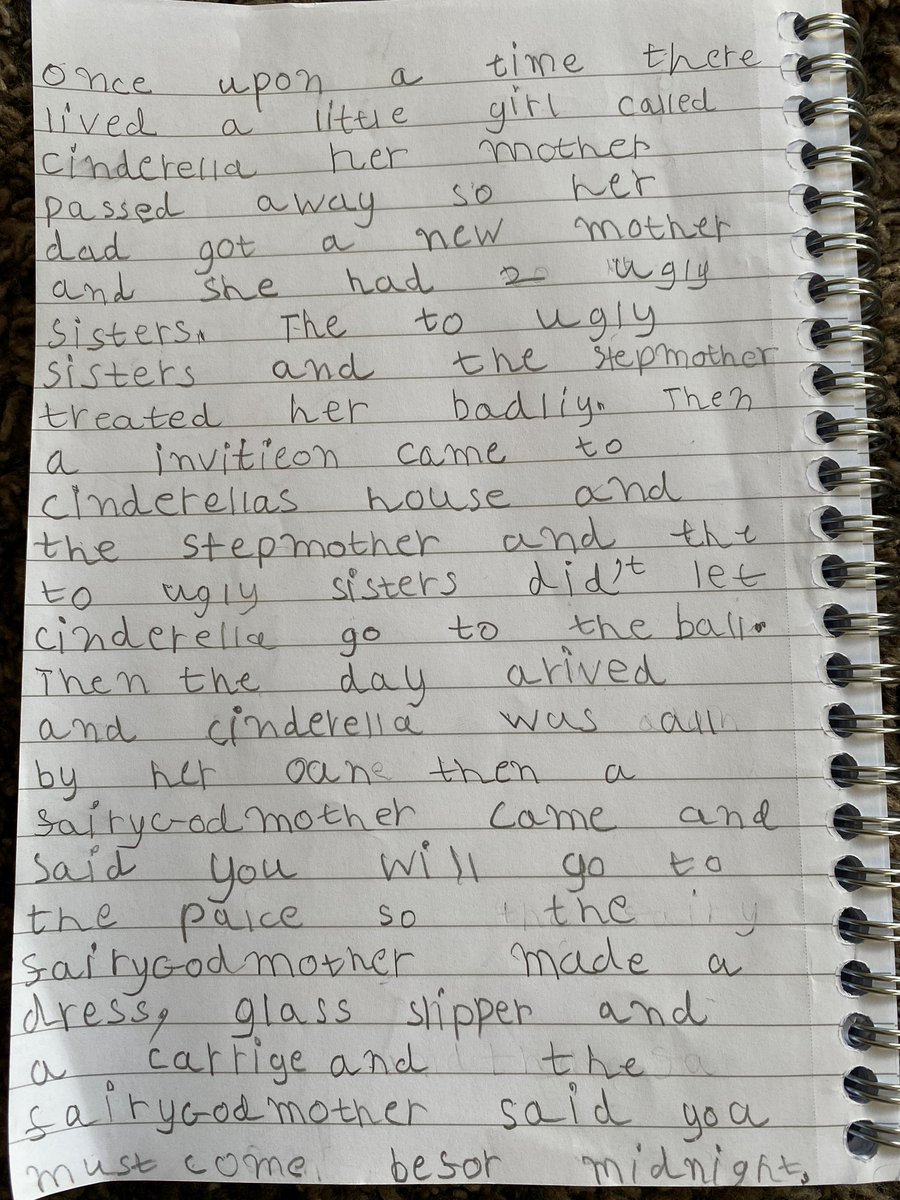 once upon a time there
lived a little girl called
cinderella her mother
passed away so her
dad got a new mother
and she had 2 ugly
sisters. The to ugly
sisters and the stepmother
treated her badliy. Then
a invitieon came to
cinderellas house and
the stepmother and the
to ugly sisters did't let
cinderella go to the ball.
Then the day arived
and cinderella was all
by her oane then a
fairyGodmother came and
said you will go to
the palce so the
fairyGodmother made a
dress, glass slipper and
a carrige and the
fairyGodmother said you
must come befor midnight.